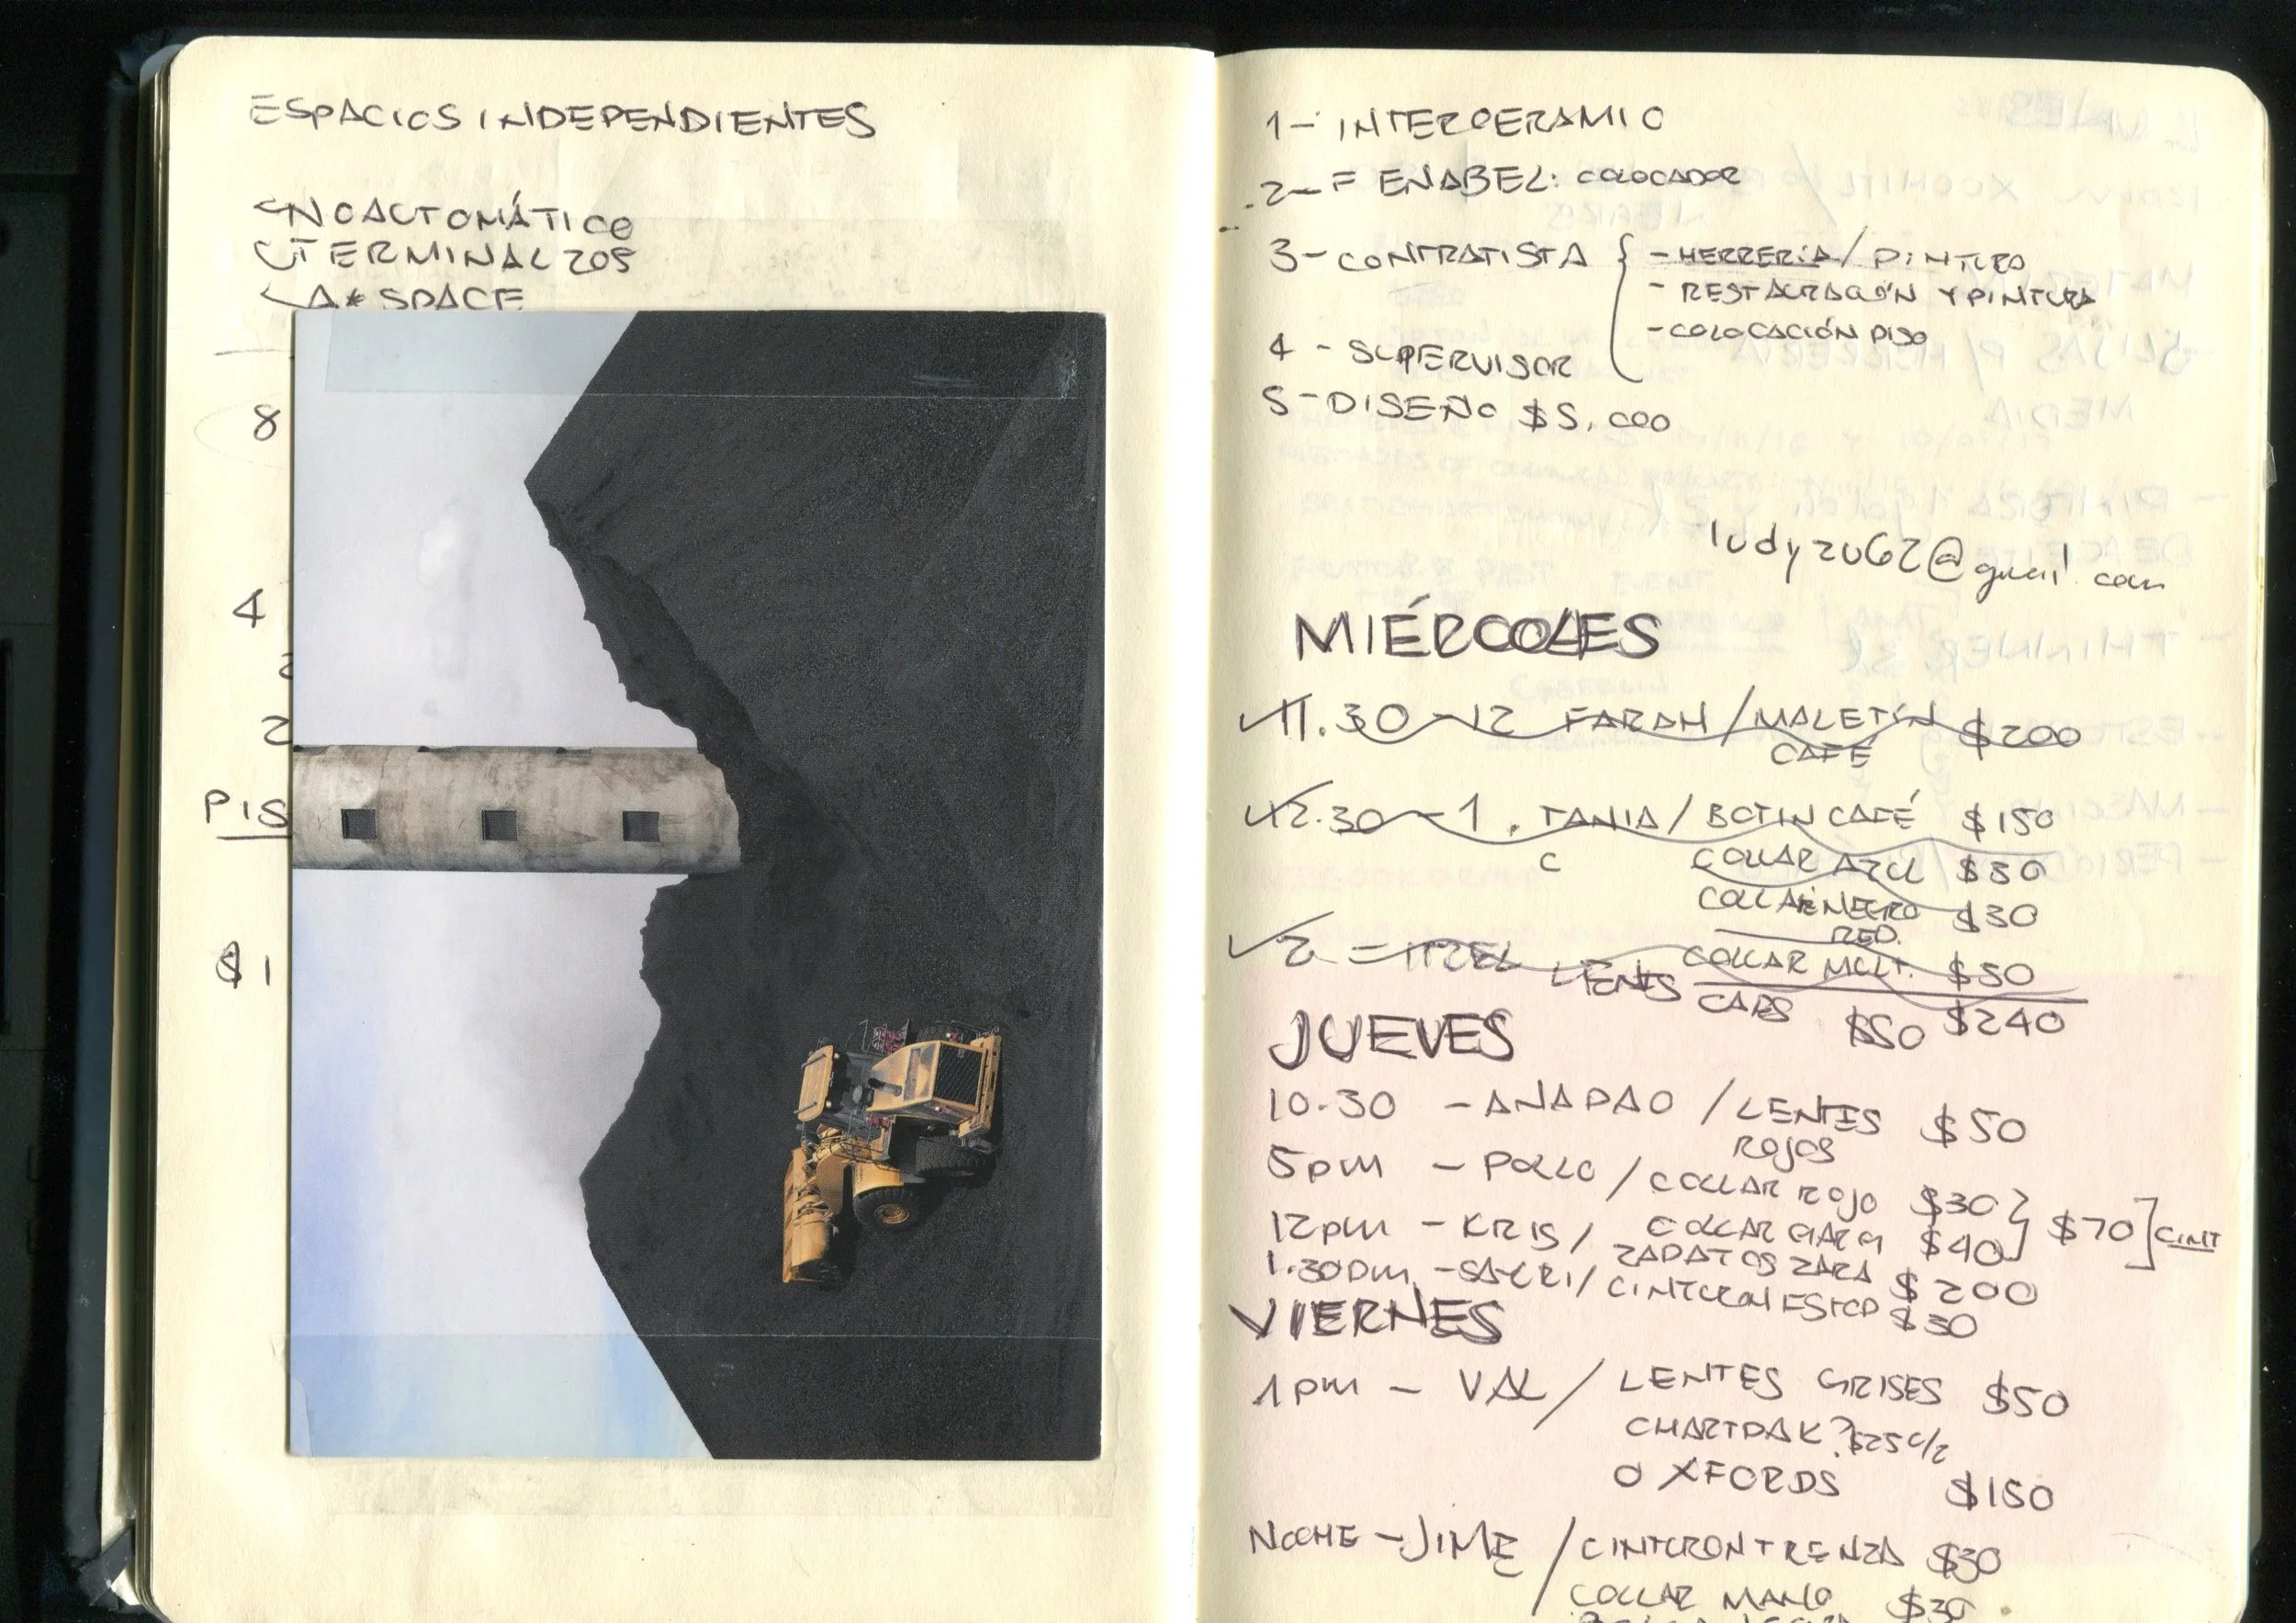 ESPACIOS INDEPENDIENTES
NOAUTOMÁTICO
TERMINAL 205
LA * SPACE
8
4
2
2
PIS
$1
1- INTERCERAMIC
2- ENABEL: COLOCADOR
3- CONTRATISTA { - HERRERÍA / PINTURA
- RESTAURACIÓN Y PINTURA
- COLOCACIÓN PISO
4 - SUPERVISOR
5 - DISEÑO $5,000
@gmail.com
MIÉRCOLES
11.30 - 12 FARAH / MALETÍN $200
CAFÉ
12.30 - 1. TANIA / BOTIN CAFÉ $150
C COLLAR AZUL $30
COLLAR NEGRO $30
RED.
2 = ITZEL COLLAR MULT. $30
LENTES CAPS $50 $240
JUEVES
10.30 - ANAPAO / LENTES $50
ROJOS
5pm - POLLO / COLLAR ROJO $30 }
12pm - KRIS / COLLAR $40 } $70 ] CINT
1.30pm - / ZAPATOS ZARA $200
CINTURON ESTOP $30
VIERNES
1pm - VAL / LENTES GRISES $50
CHARTPAK? $25 c/u
OXFORDS $150
NOCHE - JIME / CINTURON TRENZA $30
COLLAR MANO $30